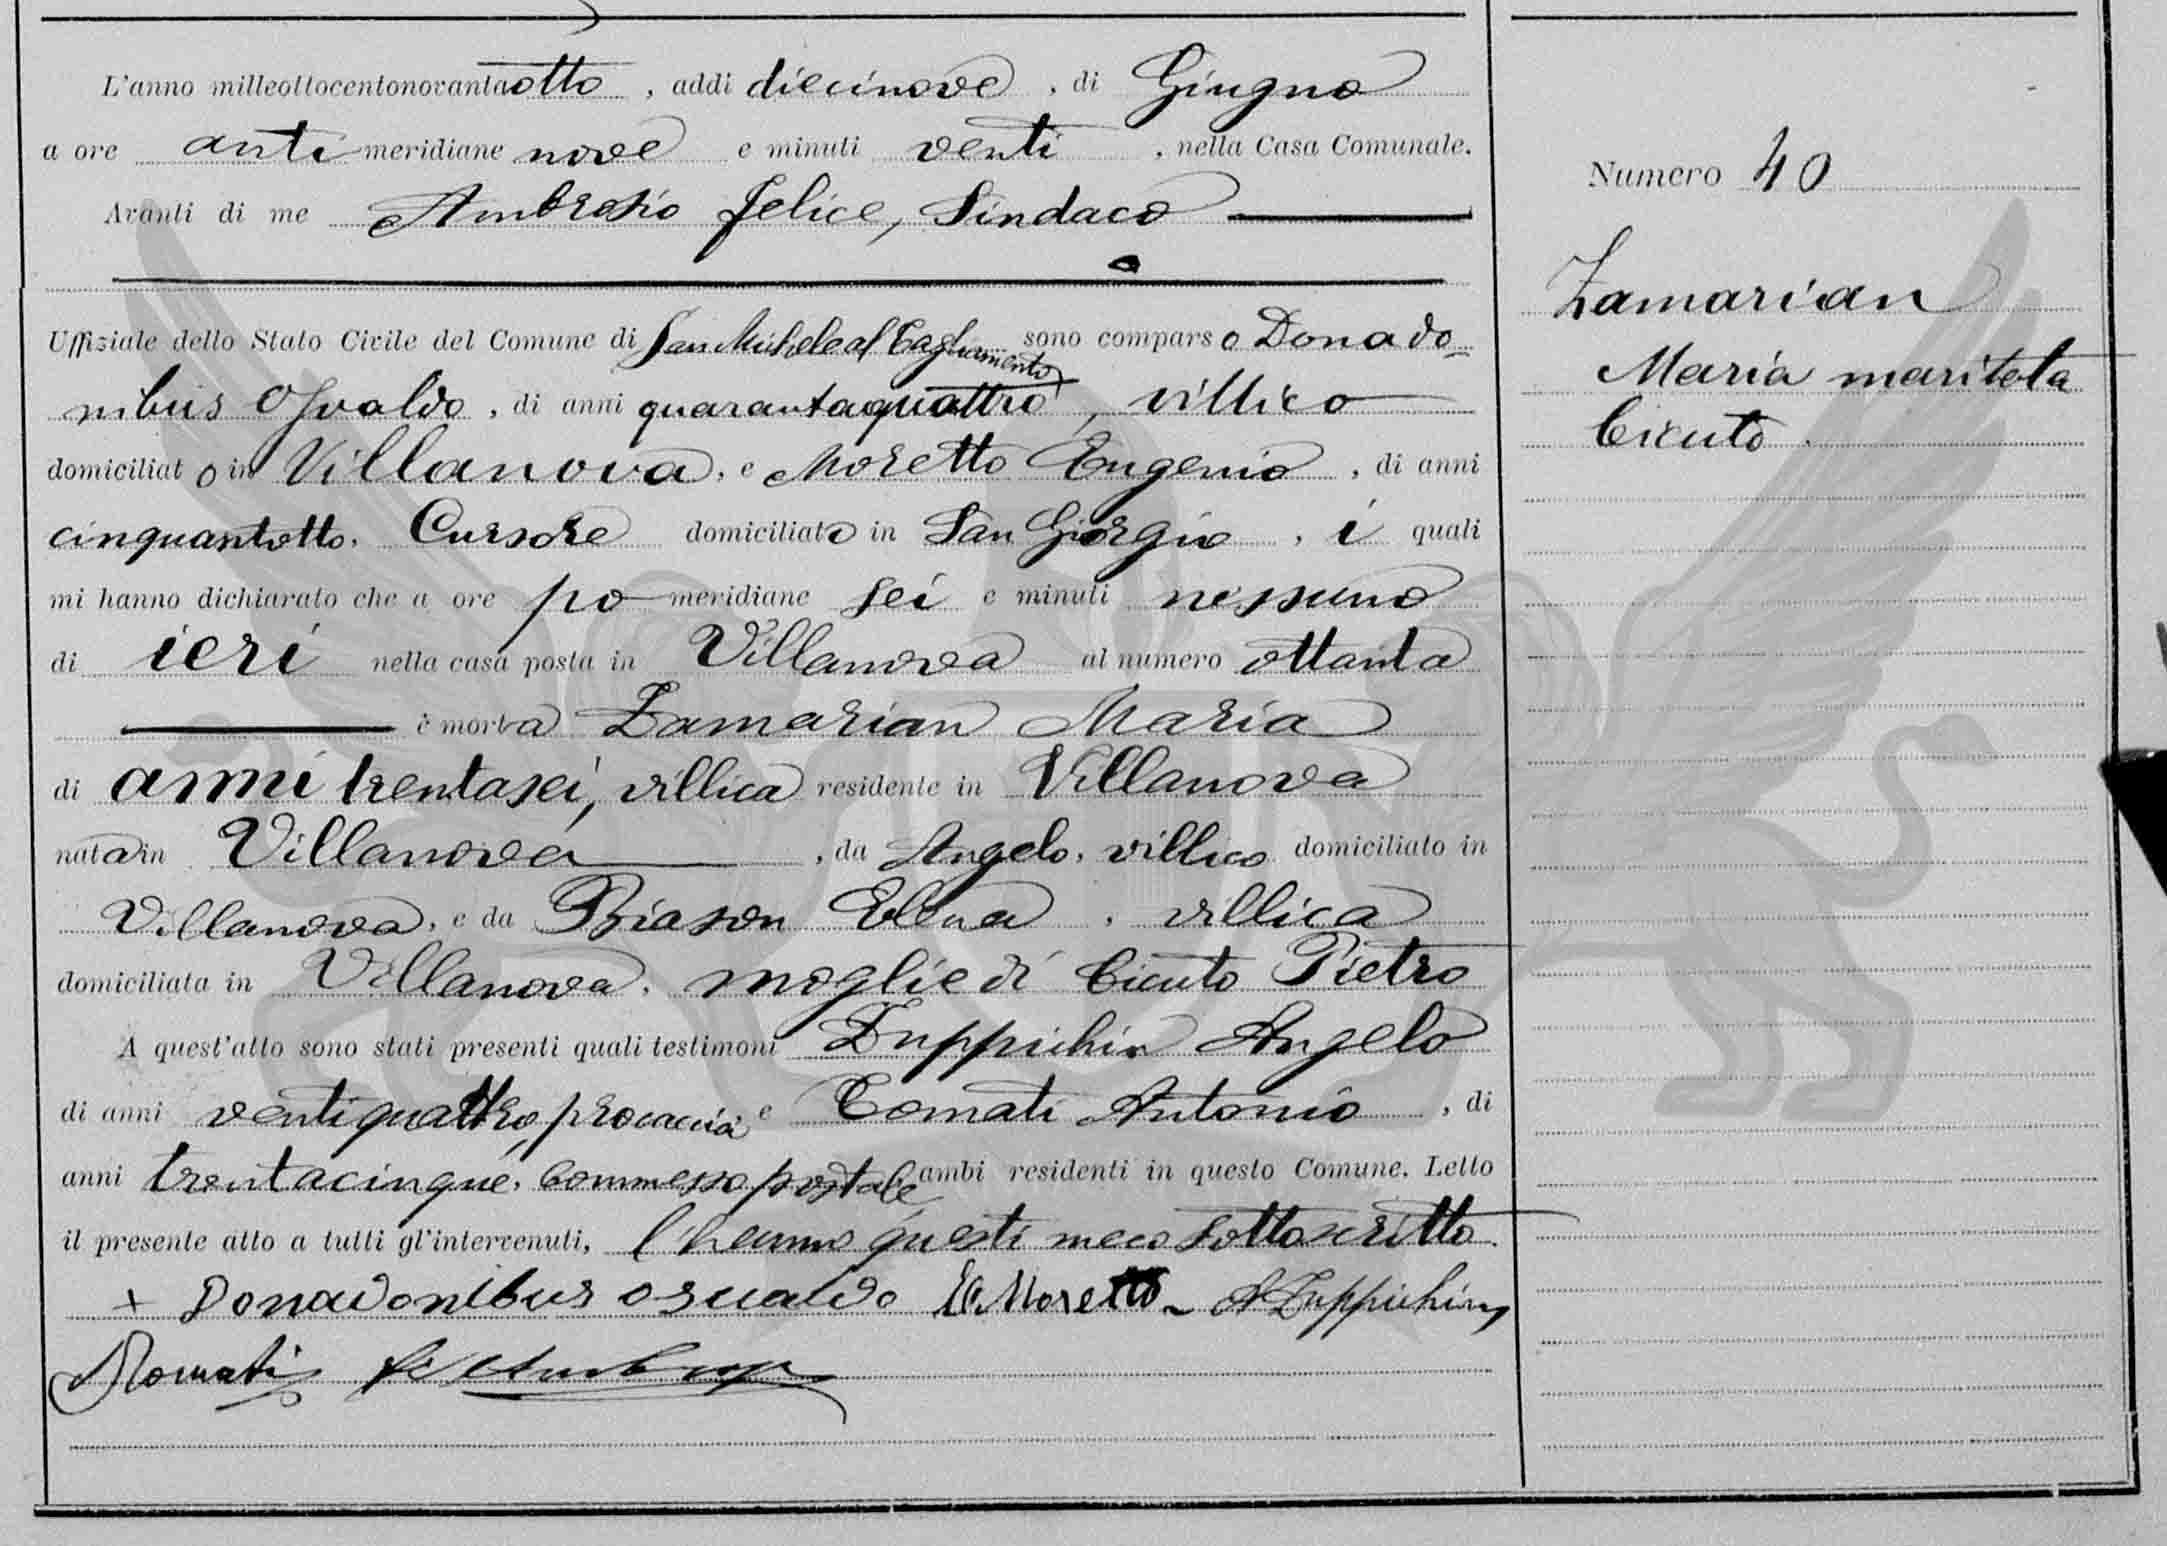 L'anno milleottocentonovantaotto, addi diecinove, di Giugno
a ore antimeridiane nove e minuti venti, nella Casa Comunale.
Avanti di me Ambrosio Felice, Sindaco
Uffiziale dello Stato Civile del Comune di San Michele al Tagliamento sono comparso Donado-
nibus Osvaldo, di anni quarantaquattro, villico
domiciliato in Villanova, e Moretto Eugenio, di anni
cinquantotto, Cursore domiciliato in San Giorgio, i quali
mi hanno dichiarato che a ore pomeridiane sei e minuti nessuno
di ieri nella casa posta in Villanova al numero ottanta
è morta Zamarian Maria
di anni trentasei, villica residente in Villanova
nata in Villanova, da Angelo, villico domiciliato in
Villanova, e da Biason Elena, villica
domiciliata in Villanova, moglie di Cicuto Pietro
A quest'atto sono stati presenti quali testimoni Zuppichin Angelo
di anni ventiquattro, procaccia, e Comati Antonio, di
anni trentacinque, commesso postale ambi residenti in questo Comune. Letto
il presente atto a tutti gl'intervenuti, l'hanno questi meco sottoscritto.
+ Donadonibus osualdo E. Moretto A Zuppichin
Numero 40
Zamarian
Maria maritata
Cicuto.